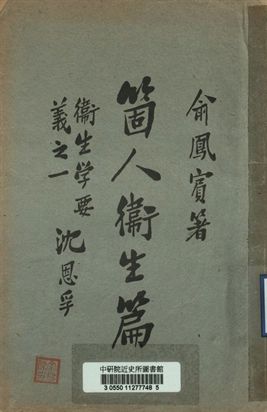 俞鳳賓著
箇人衞生篇
衞生学要
義之一
沈恩孚
中研院近史所圖書館
3 0550 11277748 5